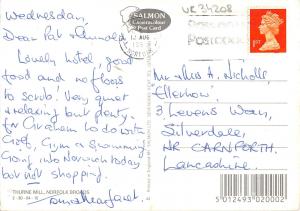 Wednesday,
Dear Pat & Arnold
Lovely hotel, good
food and no floors
to scrub! Very quiet
& relaxing but plenty
for Graham to do with
Golf, Gym & Swimming
Going into Norwich today
but not shopping.
Margaret
THURNE MILL, NORFOLK BROADS
2-30-04-10
SALMON
Cameracolour
Post Card
UK 34208
1ST
Mr & Mrs A. Nicholls,
Ellerhow
3 Levens Way,
Silverdale,
NR CARNFORTH
Lancashire.
5 012493 020002